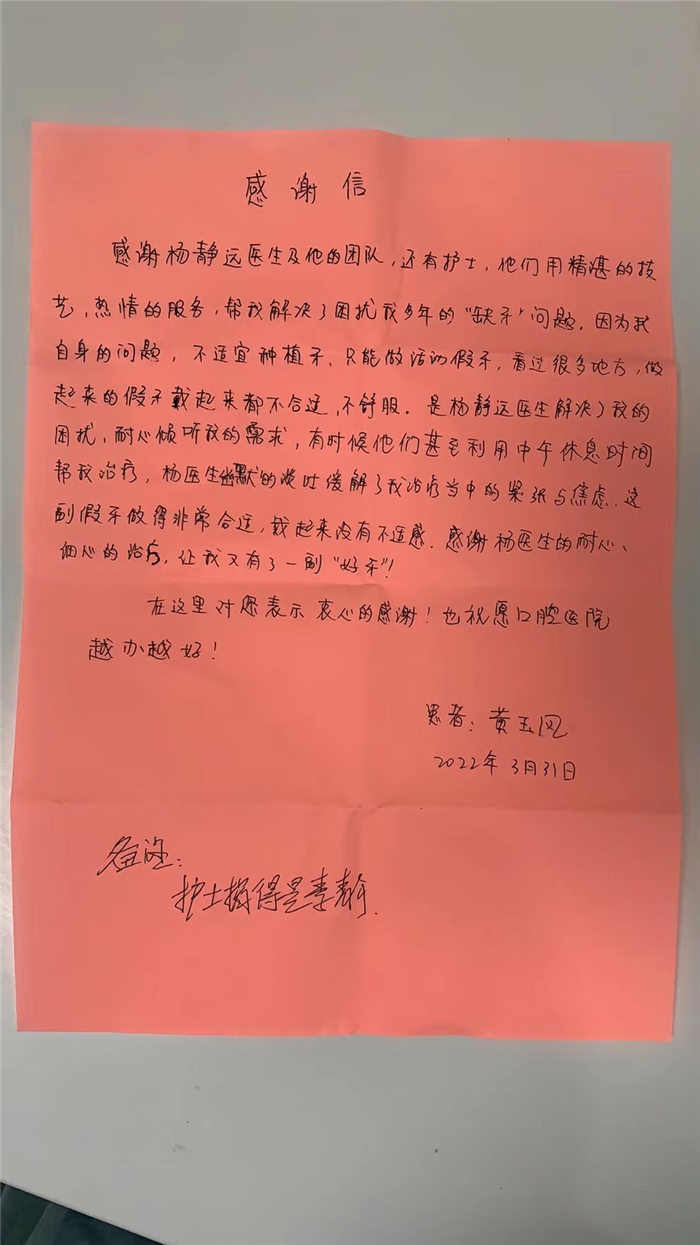 感谢信
感谢杨静远医生及他的团队，还有护士，他们用精湛的技
艺，热情的服务，帮我解决了困扰我多年的“缺牙”问题。因为我
自身的问题，不适宜种植牙、只能做活动假牙，看过很多地方，做
起来的假牙戴起来都不合适、不舒服。是杨静远医生解决了我的
困扰，耐心倾听我的需求，有时候他们甚至利用中午休息时间
帮我治疗，杨医生幽默的谈吐缓解了我治疗当中的紧张与焦虑。这
副假牙做得非常合适，戴起来没有不适感。感谢杨医生的耐心、
细心的治疗，让我又有了一副“好牙”！
在这里对您表示衷心的感谢！也祝愿口腔医院
越办越好！
患者：黄玉凤
2022年3月31日
备注：
护士指得是李静.